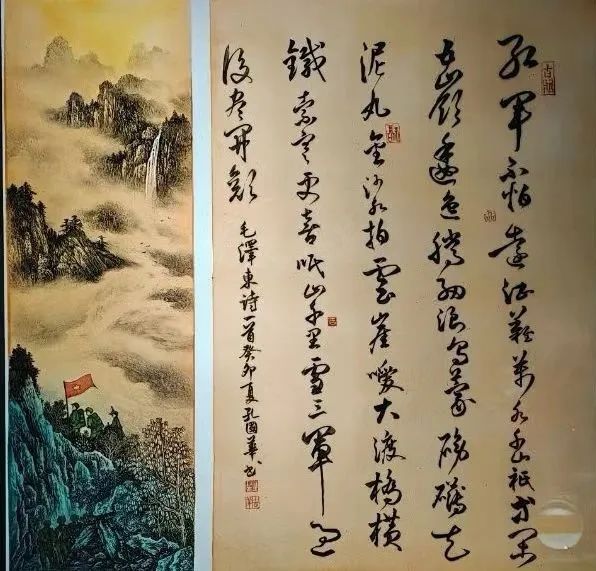 红军不怕遠征難萬水千山祇等闲
五嶺逶迤騰细浪乌蒙磅礴走
泥丸金沙水拍雲崖暖大渡橋横
鐵索寒更喜岷山千里雪三軍过
後尽開颜
毛澤東诗一首癸卯夏孔國華书